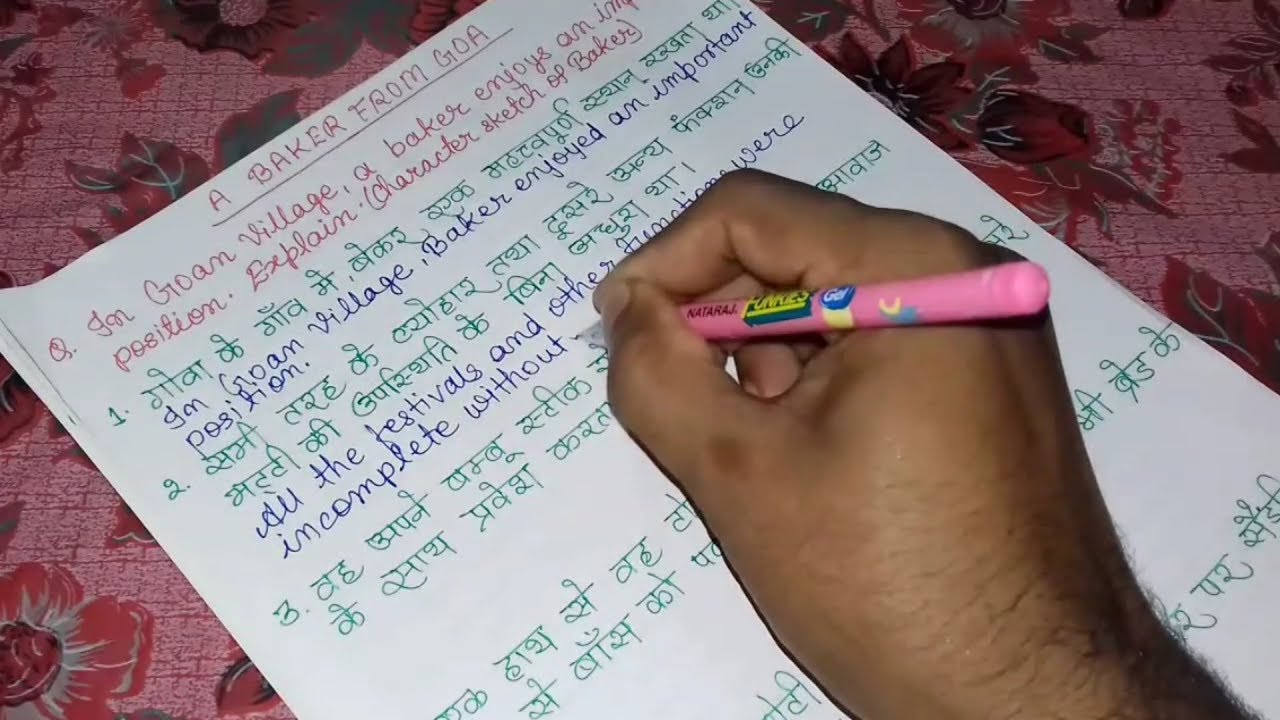 A BAKER FROM GOA
Q. In Goan Village, a baker enjoys an imp
position. Explain. (Character sketch of Baker)
1. गोवा के गाँव मे, बेकर एक महत्वपूर्ण स्थान रखता था।
In Goan Village, Baker enjoyed an important
position.
2. सभी तरह के त्योहार तथा दूसरे अन्य फंकशन उनकी
भट्टी की उपस्थिति के बिना अधुरा था।
All the festivals and other functions were
incomplete without
3. वह अपने बम्बू स्टीक आवाज
के साथ प्रवेश करता
एक हाथ से वह
से बाँस को
भी ब्रेड के
पर
NATARAJ FUNKIES Gel